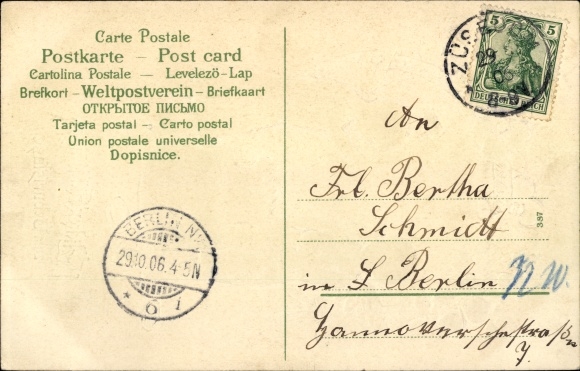 Carte Postale
Postkarte – Post card
Cartolina Postale — Levelezö-Lap
Brefkort – Weltpostverein – Briefkaart
ОТКРЫТОЕ ПИСЬМО
Tarjeta postal – Carto postal
Union postale universelle
Dopisnice.
5 5
DEUTSCHES REICH
29
06
BERLIN N.W.
29.10.06.4-5N
* 6 i
An
Frl. Bertha
Schmidt
in L Berlin N W.
Hannoverschestraße
7.
387